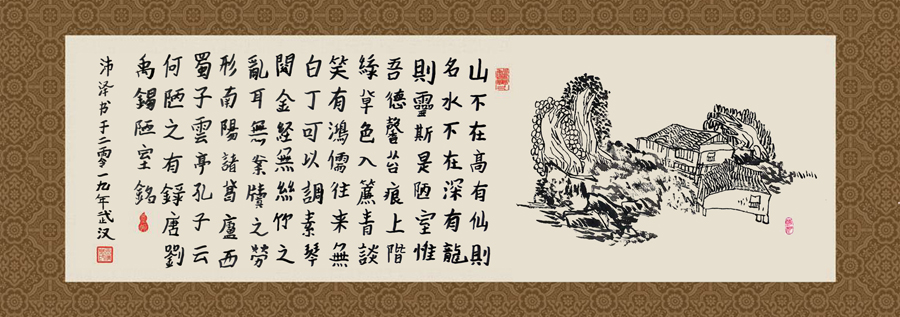 山不在高有仙則
名水不在深有龍
則靈斯是陋室惟
吾德馨苔痕上階
綠草色入簾青談
笑有鴻儒往來無
白丁可以調素琴
閱金經無絲竹之
亂耳無案牘之勞
形南陽諸葛廬西
蜀子雲亭孔子云
何陋之有錄唐劉
禹錫陋室銘
沛泽书于二零一九年武汉